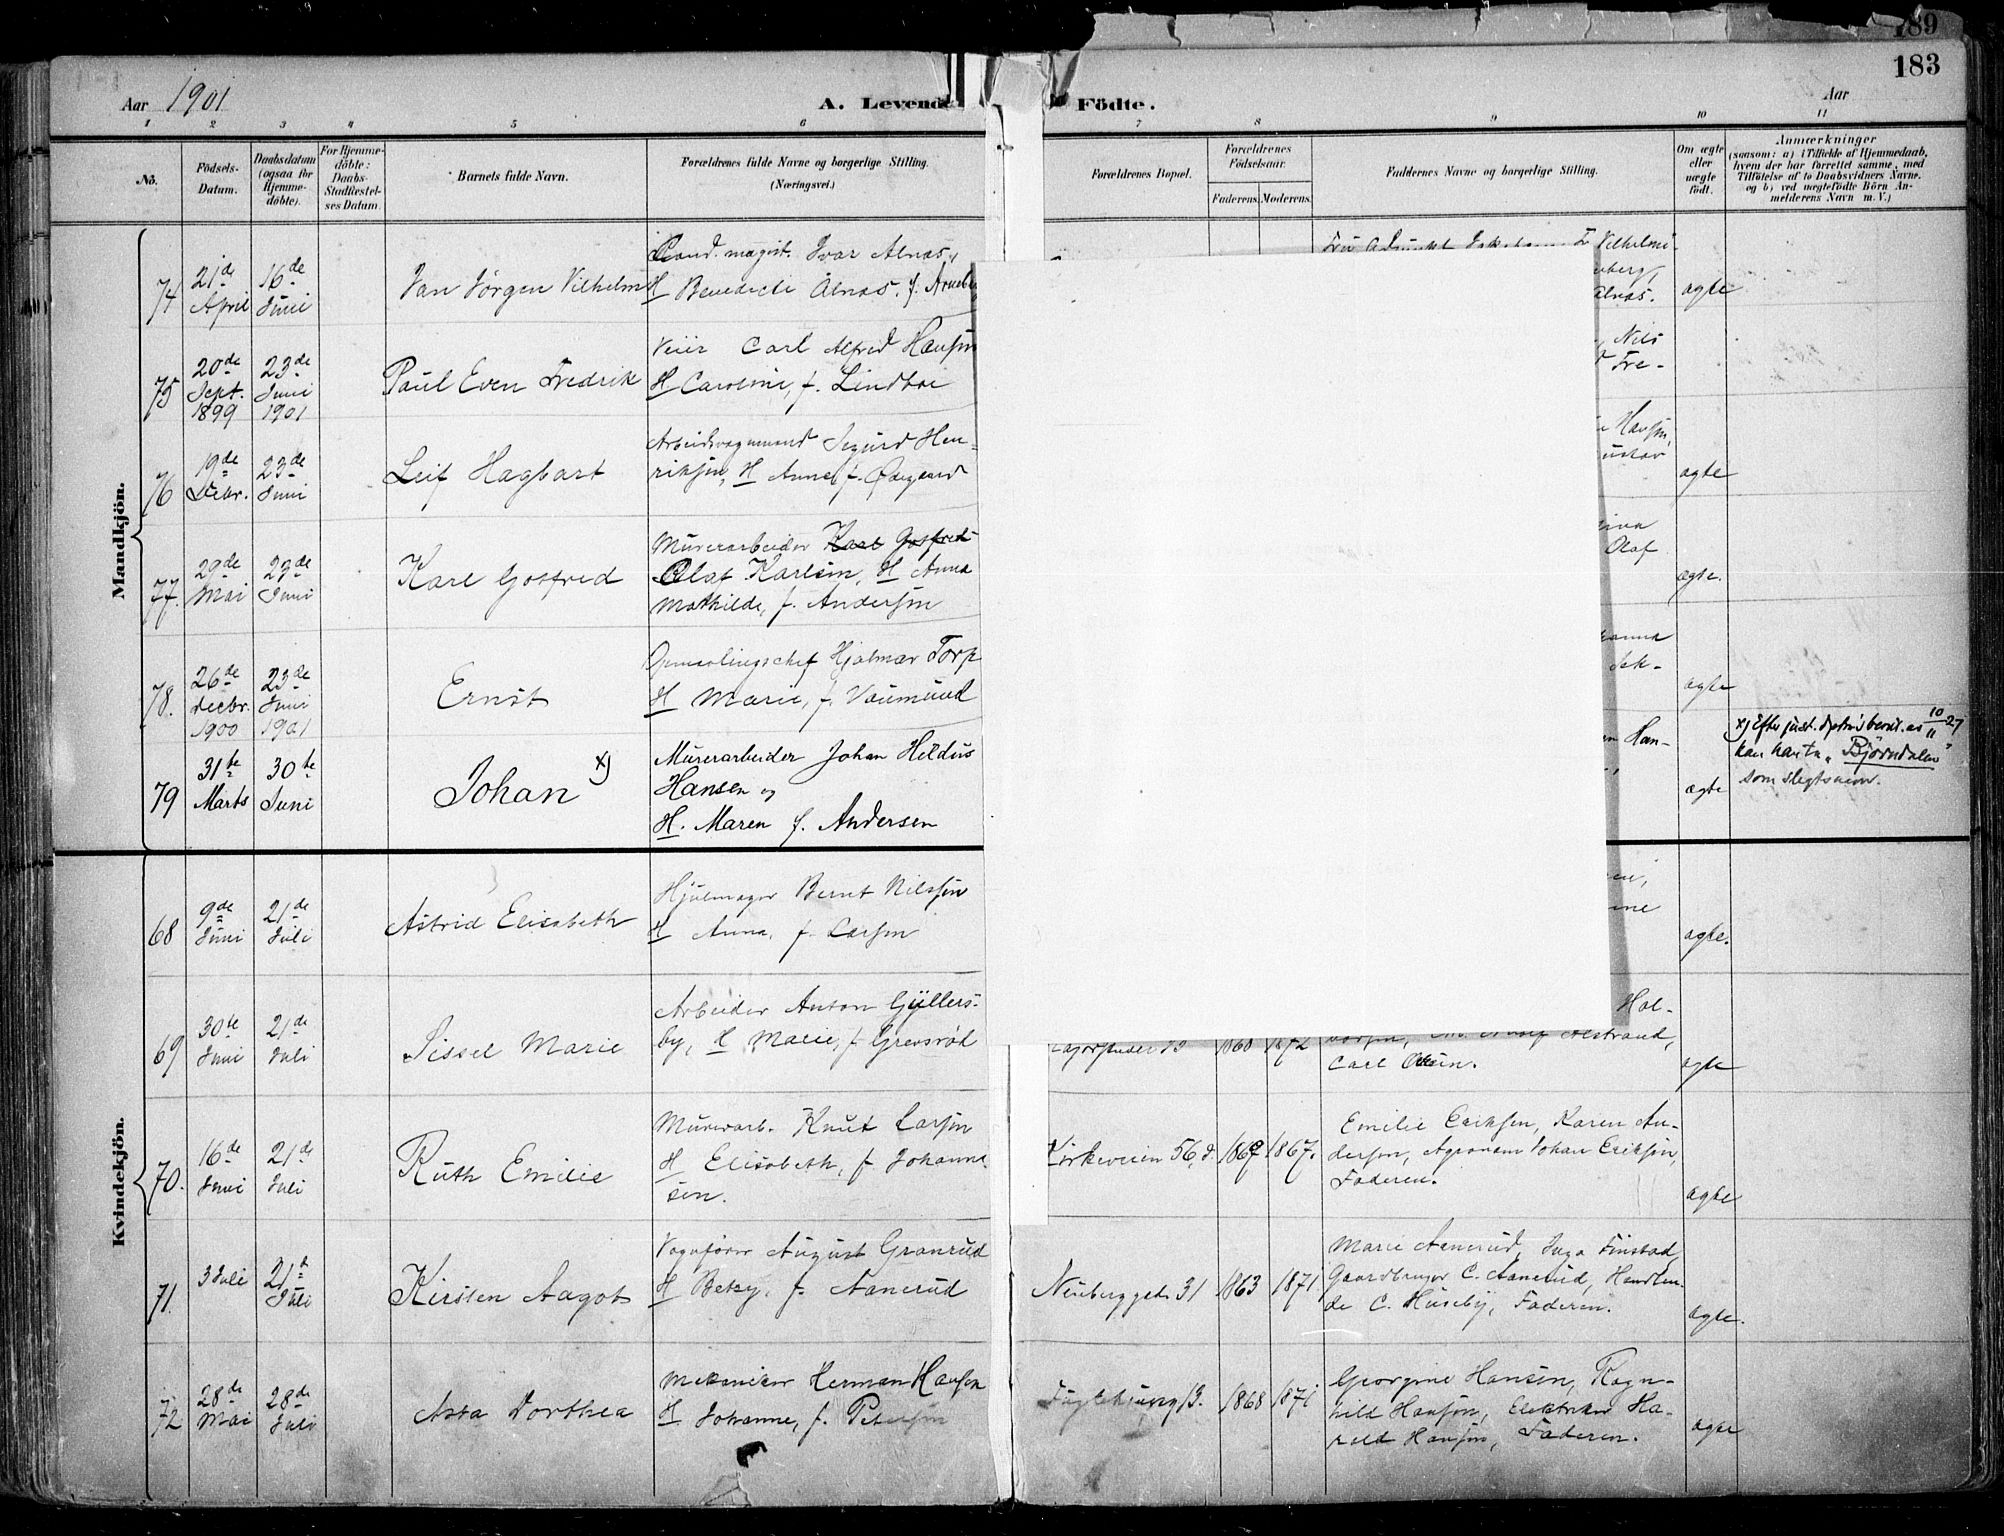 189
183
Aar 1901
A. Levende Födte.
Aar
1 2 3 4 5 6 7 8 9 10 11
No.
Födsels-Datum.
Daabsdatum (ogsaa for Hjemme-döbte).
For Hjemme-döbte: Daabs-Stadfæstel-ses Datum.
Barnets fulde Navn.
Forældrenes fulde Navne og borgerlige Stilling.
(Næringsvei.)
Forældrenes Bopæl.
Forældrenes Födselsaar.
Faderens. Moderens.
Faddernes Navne og borgerlige Stilling.
Om ægte eller uægte födt.
Anmærkninger
(saasom: a) i Tilfælde af Hjemmedaab,
hvem der har forrettet samme, med
Tilföielse af to Daabsvidners Navne,
og b) ved uægtefödte Börn An-
melderens Navn m. V.)
Mandkjön.
74
21de April
16de Juni
Jan Jörgen Vilhelm
Cand. magist. Ivar Alnæs,
H Benedicte Alnæs, f.
Vilhelmi-
berg,
Alnæs.
ægte
75
20de Sept. 1899
23de Juni 1901
Paul Even Fredrik
Carl Alfred Hansen
H Caroline, f. Lindboe
Nils
Fre-
76
19de Decbr.
23de Juni
Leif Hagbart
Arbeidsvognmand Sigurd Hen-
riksen, H Anna, f.
Hansen,
ustav
ægte
77.
29de Mai
23de Juni
Karl Gotfred
Murerarbeider Karl Gotfred
Olaf Karlsen, H Anna
Mathilde, f. Andersen
Olaf
ægte.
78.
26de Decbr. 1900
23de Juni 1901
Ernst
Opmaalingschef Hjalmar Torp
H Marie, f. Vaumund
anna
Sek-
ægte
79
31te Marts
30te Juni
Johan x)
Murerarbeider Johan Heldus
Hansen og
H. Maren f. Andersen
Han-
ægte
x) Efter just. dptm's bevil. as 10/11 27
kan han ta "Björndalen"
som slegtsnavn.
Kvindekjön.
68
9de Juni
21de Juli
Astrid Elisabeth
Hjulmager Bernt Nilssen
H Anna, f. Larsen
ægte.
69
30te Juni
21de Juli
Sissel Marie
Arbeider Anton Gyllers-
by, H Marie, f. Grevsröd
1868 1872
Hal-
vorsen, Alstrand,
Carl Olsen.
ægte
70.
16de Juni
21de Juli
Ruth Emilie
Murerarb. Knut Larsen
H Elisabeth, f. Johanne-
sen.
Kirkeveien 56, d.
1867 1867.
Emilie Eriksen, Karen An-
dersen, Agronom Johan Eriksen,
Faderen.
ægte
71.
3 Juli
21de Juli
Kirsten Aagot
Vognfører August Granrud
H Betsy, f. Aanerud
Neuberggade 31
1863 1871
Marie Aanerud, Inga Finstad,
Gaardbruger C. Aanerud, Handlen-
de C. Huseby, Faderen.
ægte.
72
28de Mai
28de Juli
Asta Dorthea
Mekaniker Herman Hansen
H Johanne, f. Petersen
1868 1871
Georgine Hansen, Ragn-
hild Hansen, Elektriker Ha-
rald Hansen, Faderen.
ægte